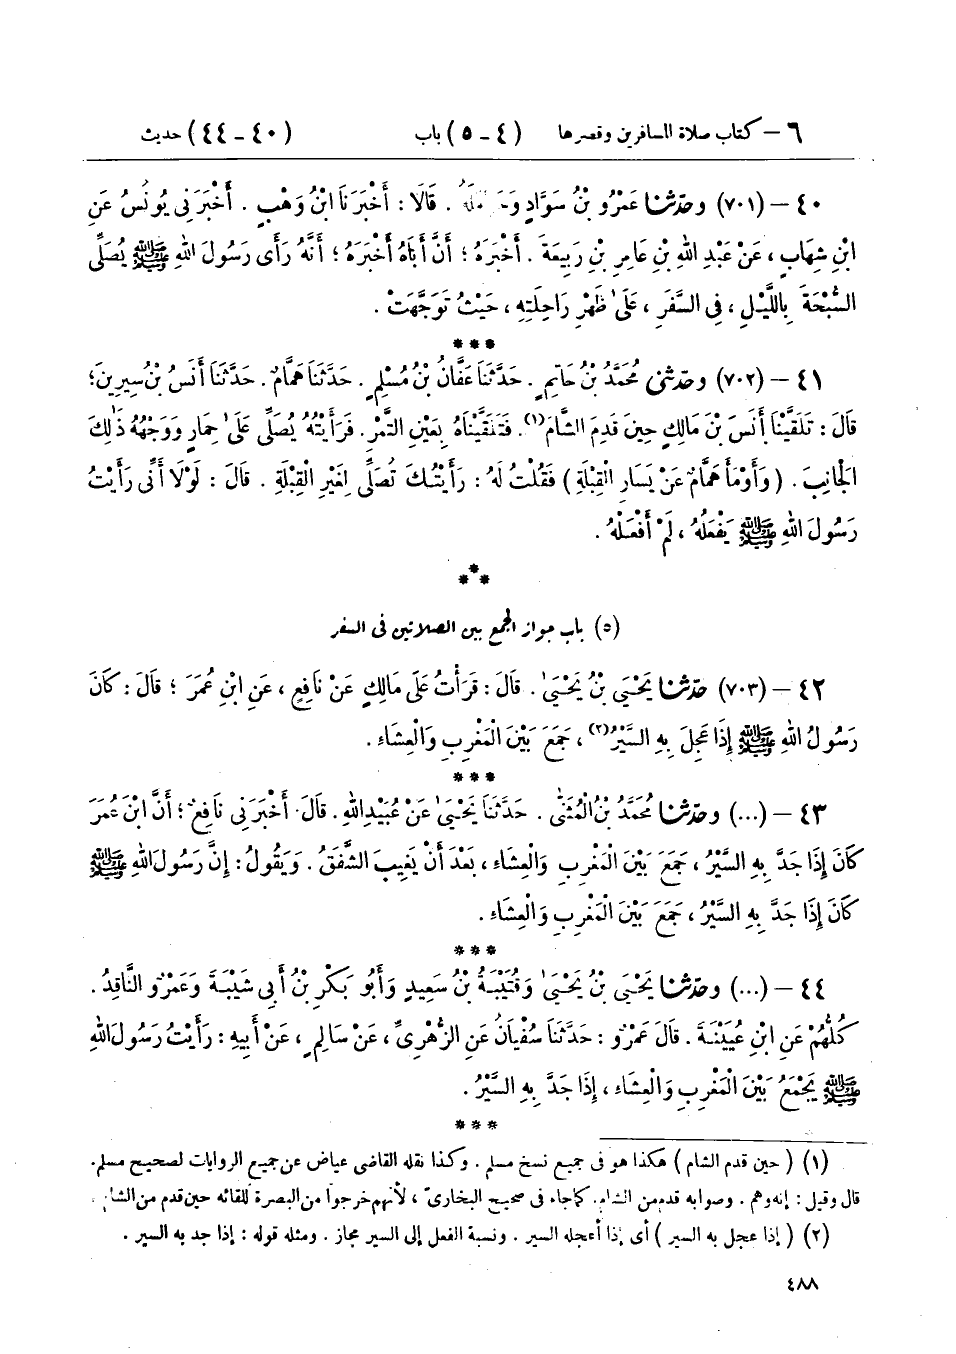 ٦ – كتاب صلاة المسافرين وقصرها (٤ – ٥) باب (٤٠ – ٤٤) حديث
٤٠ – (٧٠١) وحَدَّثَنَا عَمْرُو بْنُ سَوَّادٍ . قَالَا : أَخْبَرَنَا ابْنُ وَهْبٍ . أَخْبَرَنِي يُونُسُ عَنِ
ابْنِ شِهَابٍ ، عَنْ عَبْدِ اللهِ بْنِ عَامِرِ بْنِ رَبِيعَةَ . أَخْبَرَهُ ؛ أَنَّ أَبَاهُ أَخْبَرَهُ ؛ أَنَّهُ رَأَى رَسُولَ اللهِ ﷺ يُصَلِّي
السُّبْحَةَ بِاللَّيْلِ ، فِي السَّفَرِ ، عَلَى ظَهْرِ رَاحِلَتِهِ ، حَيْثُ تَوَجَّهَتْ .
***
٤١ – (٧٠٢) وحَدَّثَنِي مُحَمَّدُ بْنُ حَاتِمٍ . حَدَّثَنَا عَفَّانُ بْنُ مُسْلِمٍ . حَدَّثَنَا هَمَّامٌ . حَدَّثَنَا أَنَسُ بْنُ سِيرِينَ ؛
قَالَ : تَلَقَّيْنَا أَنَسَ بْنَ مَالِكٍ حِينَ قَدِمَ الشَّامَ(١) . فَتَلَقَّيْنَاهُ بِعَيْنِ التَّمْرِ . فَرَأَيْتُهُ يُصَلِّي عَلَى حِمَارٍ وَوَجْهُهُ ذَلِكَ
الْجَانِبَ . ( وَأَوْمَأَ هَمَّامٌ عَنْ يَسَارِ الْقِبْلَةِ ) فَقُلْتُ لَهُ : رَأَيْتُكَ تُصَلِّي لِغَيْرِ الْقِبْلَةِ . قَالَ : لَوْلَا أَنِّي رَأَيْتُ
رَسُولَ اللهِ ﷺ يَفْعَلُهُ ، لَمْ أَفْعَلْهُ .
***
(٥) باب جواز الجمع بين الصلاتين فى السفر
٤٢ – (٧٠٣) حَدَّثَنَا يَحْيَى بْنُ يَحْيَى . قَالَ : قَرَأْتُ عَلَى مَالِكٍ عَنْ نَافِعٍ ، عَنِ ابْنِ عُمَرَ ؛ قَالَ : كَانَ
رَسُولُ اللهِ ﷺ إِذَا عَجِلَ بِهِ السَّيْرُ(٢) ، جَمَعَ بَيْنَ الْمَغْرِبِ وَالْعِشَاءِ .
***
٤٣ – (...) وحَدَّثَنَا مُحَمَّدُ بْنُ الْمُثَنَّى . حَدَّثَنَا يَحْيَى عَنْ عُبَيْدِ اللهِ . قَالَ : أَخْبَرَنِي نَافِعٌ ؛ أَنَّ ابْنَ عُمَرَ
كَانَ إِذَا جَدَّ بِهِ السَّيْرُ ، جَمَعَ بَيْنَ الْمَغْرِبِ وَالْعِشَاءِ ، بَعْدَ أَنْ يَغِيبَ الشَّفَقُ . وَيَقُولُ : إِنَّ رَسُولَ اللهِ ﷺ
كَانَ إِذَا جَدَّ بِهِ السَّيْرُ ، جَمَعَ بَيْنَ الْمَغْرِبِ وَالْعِشَاءِ .
***
٤٤ – (...) وحَدَّثَنَا يَحْيَى بْنُ يَحْيَى وَقُتَيْبَةُ بْنُ سَعِيدٍ وَأَبُو بَكْرِ بْنُ أَبِي شَيْبَةَ وَعَمْرٌو النَّاقِدُ .
كُلُّهُمْ عَنِ ابْنِ عُيَيْنَةَ . قَالَ عَمْرٌو : حَدَّثَنَا سُفْيَانُ عَنِ الزُّهْرِيِّ ، عَنْ سَالِمٍ ، عَنْ أَبِيهِ : رَأَيْتُ رَسُولَ اللهِ
ﷺ يَجْمَعُ بَيْنَ الْمَغْرِبِ وَالْعِشَاءِ ، إِذَا جَدَّ بِهِ السَّيْرُ .
***
(١) ( حين قدم الشام ) هكذا هو فى جميع نسخ مسلم . وكذا نقله القاضى عياض عن جميع الروايات لصحيح مسلم .
قال وقيل : إنه وهم . وصوابه قدم من الشام . كما جاء فى صحيح البخارىّ ، لأنهم خرجوا من البصرة للقائه حين قدم من الشام .
(٢) ( إذا عجل به السير ) أى إذا أعجله السير . ونسبة الفعل إلى السير مجاز . ومثله قوله : إذا جد به السير .
٤٨٨